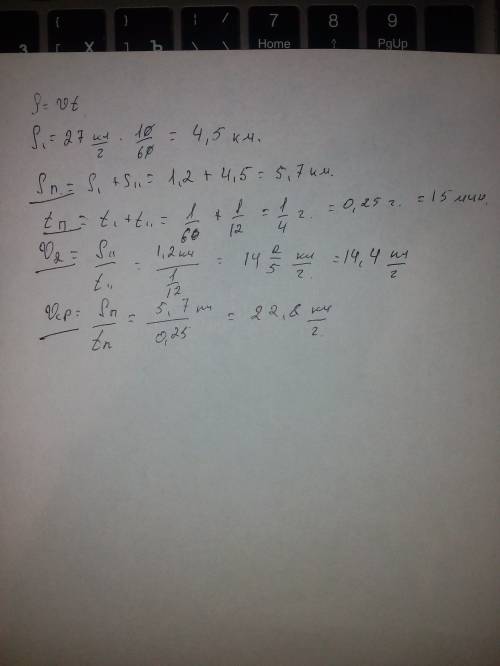 { } ! / 7 8 9
[ Х ] Ъ \ Home ? PgUp
S = Vt
S₁ = 27 км/г · 10/60 = 4,5 км.
Sп = S₁ + S₁₁ = 1,2 + 4,5 = 5,7 км.
tп = t₁ + t₁₁ = 1/60 + 1/12 = 1/4 г. = 0,25 г. = 15 мин.
V₂ = S₁₁/t₁₁ = 1,2 км / 1/12 = 14 2/5 км/г. = 14,4 км/г
Vср = Sп/tп = 5,7 км / 0,25 = 22,8 км/г.